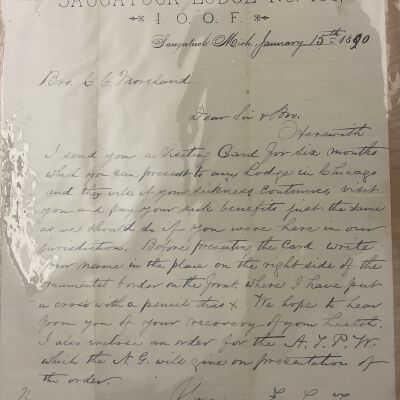 SAUGATUCK LODGE NO.
I. O. O. F.
Saugatuck Mich. January 15th 1890
Bro. C. C. Moreland.
Dear Sir & Bro.
Herewith
I send you a Visiting Card for six months
which you can present to any Lodge in Chicago
and they will, if your sickness continues, visit
you and pay your sick benefits just the same
as we should do if you were here in our
jurisdiction. Before presenting the Card write
your name in the place on the right side of the
ornamental border on the front. where I have put
a cross with a pencil this x We hope to hear
from you of your recovery of your health.
I also enclose an order for the A. T. P. W.
which the N. G. will give on presentation of
the order.